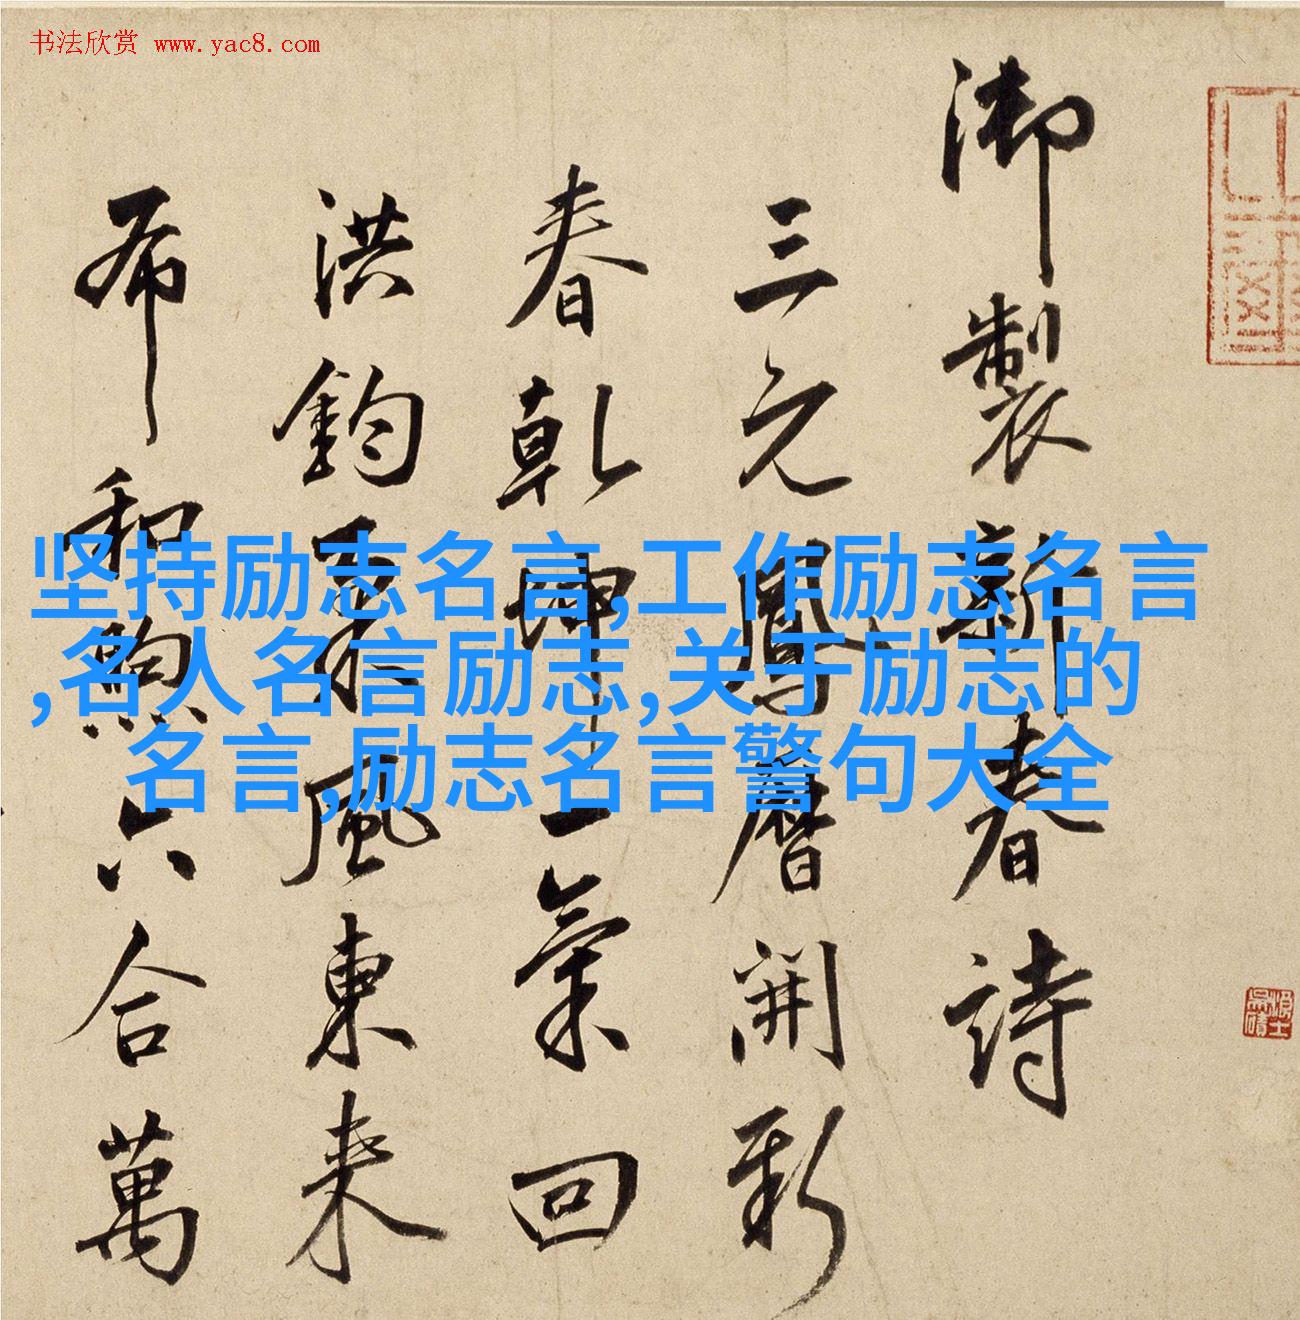 书法欣赏 www.yac8.com
御製新春詩
三元鳳曆開新
春乾坤一氣回
洪鈞風東来
布和煦六合萬
坚持励志名言,工作励志名言
,名人名言励志,关于励志的
名言,励志名言警句大全